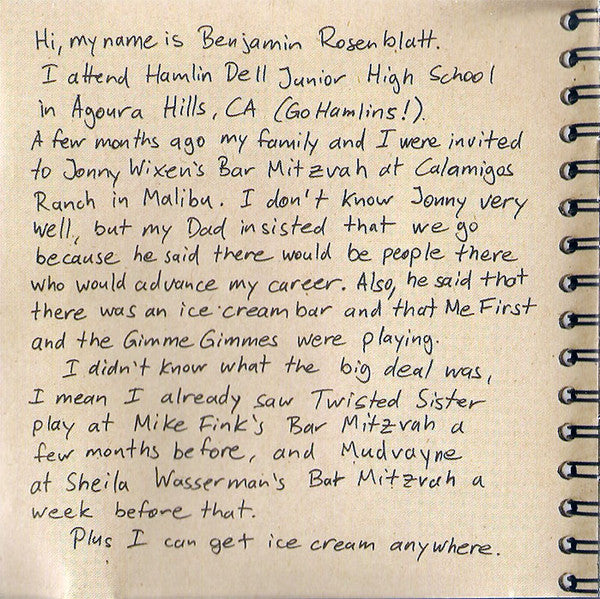 Hi, my name is Benjamin Rosenblatt.
I attend Hamlin Dell Junior High School
in Agoura Hills, CA (Go Hamlins!).
A few months ago my family and I were invited
to Jonny Wixen's Bar Mitzvah at Calamigos
Ranch in Malibu. I don't know Jonny very
well, but my Dad insisted that we go
because he said there would be people there
who would advance my career. Also, he said that
there was an ice cream bar and that Me First
and the Gimme Gimmes were playing.
I didn't know what the big deal was,
I mean I already saw Twisted Sister
play at Mike Fink's Bar Mitzvah a
few months before, and Mudvayne
at Sheila Wasserman's Bat Mitzvah a
week before that.
Plus I can get ice cream anywhere.